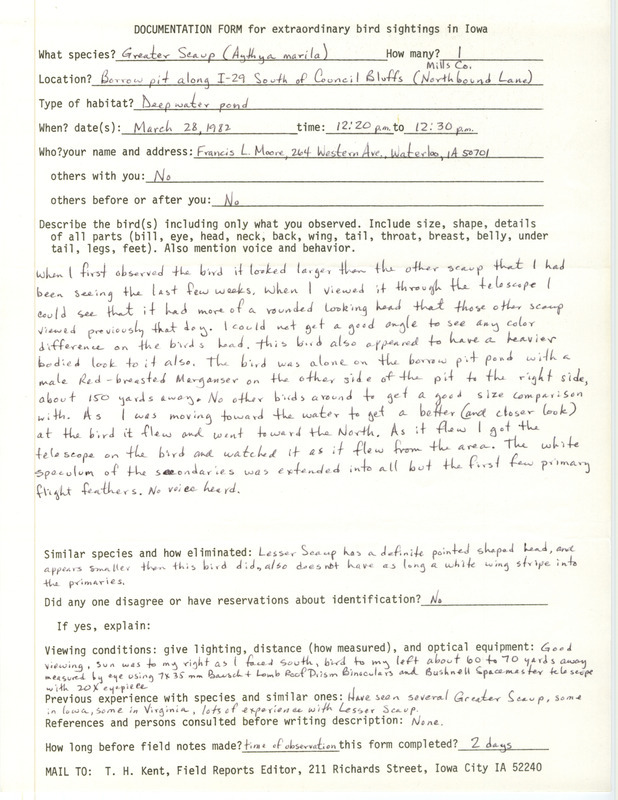 DOCUMENTATION FORM for extraordinary bird sightings in Iowa
What species? Greater Scaup (Aythya marila) How many? 1
Mills Co.
Location? Borrow pit along I-29 South of Council Bluffs (Northbound Lane)
Type of habitat? Deep water pond
When? date(s): March 28, 1982 time: 12:20 p.m. to 12:30 p.m.
Who?your name and address: Francis L. Moore, 264 Western Ave., Waterloo, IA 50701
others with you: No
others before or after you: No
Describe the bird(s) including only what you observed. Include size, shape, details
of all parts (bill, eye, head, neck, back, wing, tail, throat, breast, belly, under
tail, legs, feet). Also mention voice and behavior.
When I first observed the bird it looked larger than the other scaup that I had
been seeing the last few weeks. When I viewed it through the telescope I
could see that it had more of a rounded looking head that those other scaup
viewed previously that day. I could not get a good angle to see any color
difference on the birds head. This bird also appeared to have a heavier
bodied look to it also. The bird was alone on the borrow pit pond with a
male Red-breasted Merganser on the other side of the pit to the right side,
about 150 yards away. No other birds around to get a good size comparison
with. As I was moving toward the water to get a better (and closer look)
at the bird it flew and went toward the North. As it flew I got the
telescope on the bird and watched it as it flew from the area. The white
speculum of the secondaries was extended into all but the first few primary
flight feathers. No voice heard.
Similar species and how eliminated: Lesser Scaup has a definite pointed shaped head, and
appears smaller then this bird did, also does not have as long a white wing stripe into
the primaries.
Did any one disagree or have reservations about identification? No
If yes, explain:
Viewing conditions: give lighting, distance (how measured), and optical equipment: Good
viewing, sun was to my right as I faced south, bird to my left about 60 to 70 yards away
measured by eye using 7x35 mm Bausch & Lomb Roof Prism Binoculars and Bushnell Spacemaster telescope
with 20X eyepiece
Previous experience with species and similar ones: Have seen several Greater Scaup, some
in Iowa, some in Virginia, lots of experience with Lesser Scaup.
References and persons consulted before writing description: None.
How long before field notes made? time of observation this form completed? 2 days
MAIL TO: T. H. Kent, Field Reports Editor, 211 Richards Street, Iowa City IA 52240